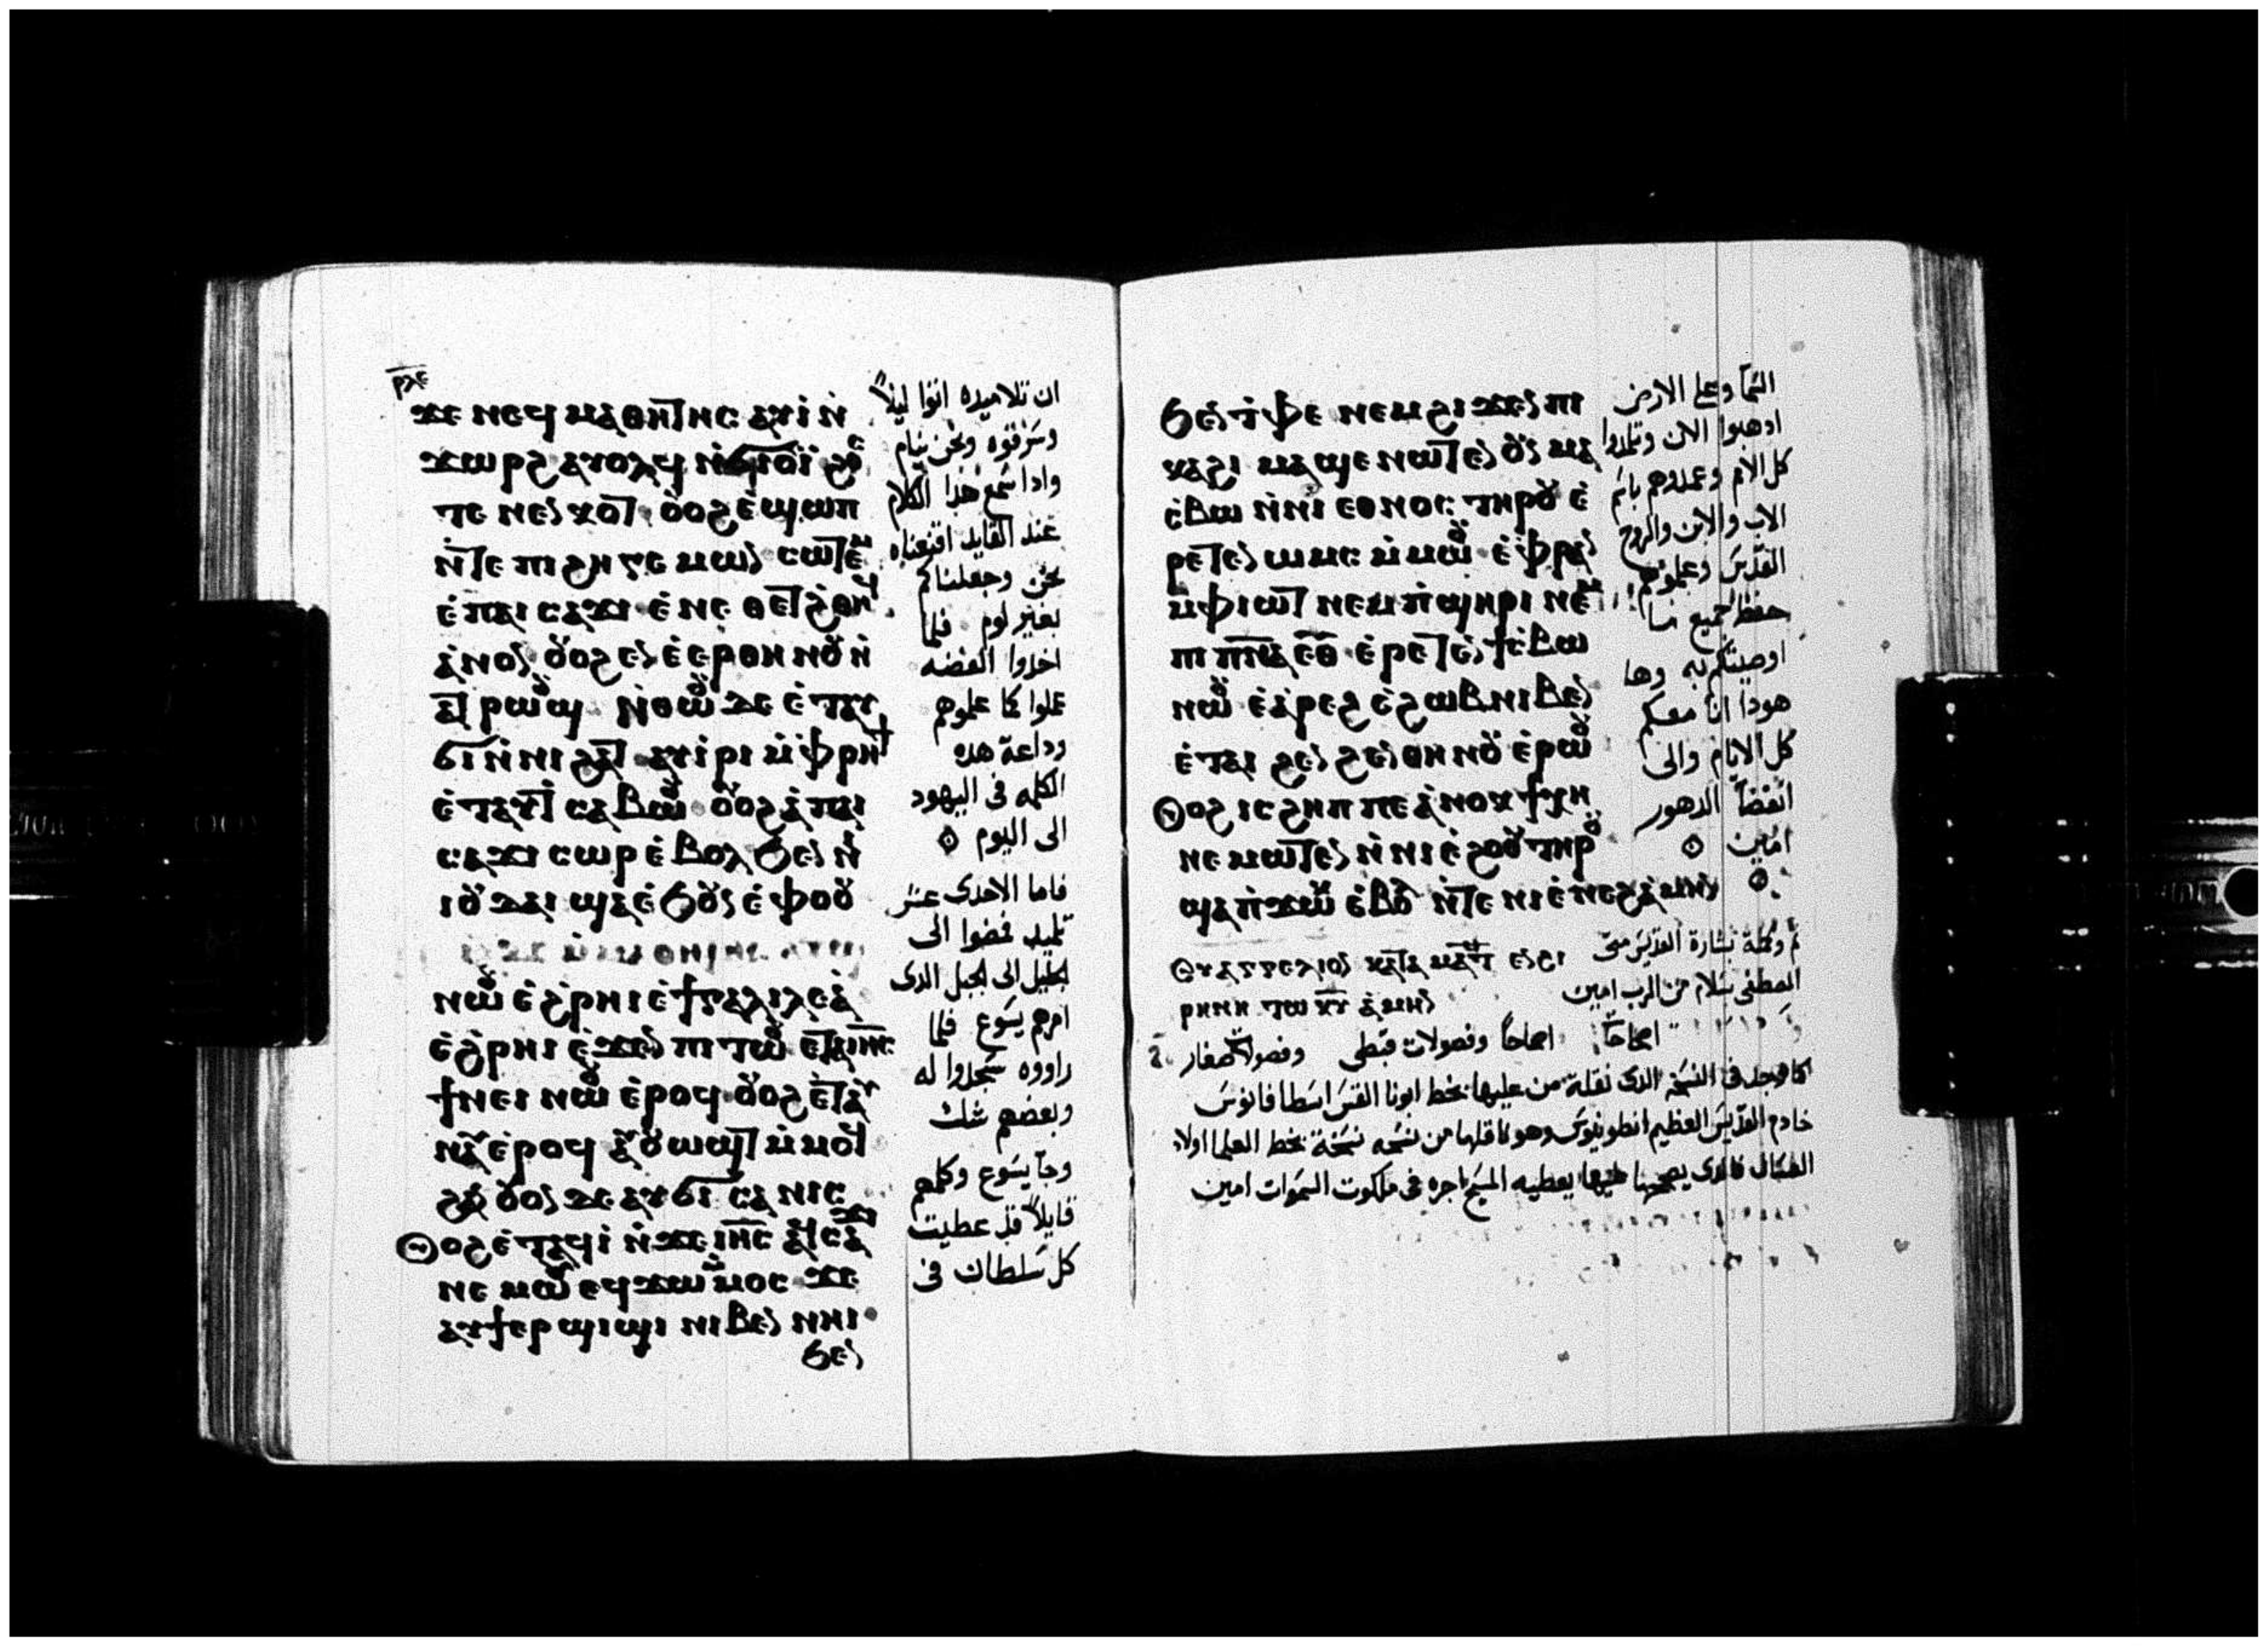 ⲣⲗⲉ
ϫⲉ ⲛⲉϥⲙⲁⲑⲏⲧⲏⲥ ⲁⲩⲓ̀ ⲛ̀
ϫⲱⲣϩ ⲁⲩⲟⲗϥ ⲛ̀ϭⲓⲟⲩⲓ̀ ϩⲟ
ⲧⲉ ⲛⲉⲛⲕⲟⲧ ⲟⲩⲟϩ ⲉ̀ϣⲱⲡ
ⲛ̀ⲧⲉ ⲡⲓϩⲏⲅⲉⲙⲱⲛ ⲥⲱⲧⲉⲙ
ⲉ̀ⲡⲁⲓ ⲥⲁϫⲓ ⲉ̀ⲛⲉ ⲑⲉⲧϩ̀ⲑⲏϥ
ⲁ̀ⲛⲟⲛ ⲟⲩⲟϩ ⲉⲛⲉ̀ⲉⲣⲑⲏⲛⲟⲩ ⲛ̀
ⲁⲧⲣⲱⲟⲩϣ ⲛ̀ⲑⲱⲟⲩ ⲇⲉ ⲉ̀ⲧⲁⲩ
ϭⲓ ⲛ̀ⲛⲓϩⲁⲧ ⲁⲩⲓ̀ⲣⲓ ⲙ̀ⲫⲣⲏϯ
ⲉ̀ⲧⲁⲩⲧⲥⲁⲃⲱⲟⲩ ⲟⲩⲟϩ ⲁ̀ⲡⲁⲓ
ⲥⲁϫⲓ ⲥⲱⲣ ⲉ̀ⲃⲟⲗ ϧⲉⲛ ⲛ̀
ⲓⲟⲩⲇⲁⲓ ϣⲁ ⲉ̀ϧⲟⲩⲛ ⲉ̀ⲫⲟⲟⲩ
ⲛⲱⲟⲩ ⲉ̀ϩ̀ⲣⲏⲓ ⲉ̀ϯⲅⲁⲗⲓⲗⲉⲁ̀
ⲉ̀ϩ̀ⲣⲏⲓ ⲉ̀ϫⲉⲛ ⲡⲓⲧⲱⲟⲩ ⲉⲧⲁ ⲓⲏⲥ
ϯⲛⲉⲓ ⲛⲱⲟⲩ ⲉ̀ⲣⲟϥ ⲟⲩⲟϩ ⲉ̀ⲧⲁⲩ
ⲛⲁⲩ ⲉ̀ⲣⲟϥ ⲁⲩⲟⲩⲱϣⲧ ⲙ̀ⲙⲟϥ
ϩⲁⲛⲟⲩⲟⲛ ⲇⲉ ⲁⲩϭⲓ ⲥⲁⲛⲓⲥ
ⲟⲩⲟϩ ⲉ̀ⲧⲁϥⲓ̀ ⲛ̀ϫⲉ ⲓⲏⲥ ⲁϥⲥⲁϫⲓ
ⲛⲉⲙⲱⲟⲩ ⲉϥϫⲱ ⲙ̀ⲙⲟⲥ ϫⲉ
ⲁⲩϯⲉⲣϣⲓϣⲓ ⲛⲓⲃⲉⲛ ⲛⲏⲓ
ϧⲉⲛ
ان تلاميده اتوا ليلاً
وسرقوه ونحن نيام
وادا سمع هدا الكلام
عند القايد اقنعناه
نحن وجعلناكم
بغير لوم فلما
اخدوا الفضه
عملوا كما علموهم
وداعة هده
الكلمه فى اليهود
الى اليوم
فاما الاحدى عشر
تلميد فمضوا الى
الجليل الى الجبل الدى
امرهم يسوع فلما
راووه سجدوا له
وبعضهم شك
وجا يسوع وكلمهم
قايلاً قد عطيت
كل سلطان فى
ϧⲉⲛ ⲧ̀ⲫⲉ ⲛⲉⲙ ϩⲓϫⲉⲛ ⲡⲓ
ⲕⲁϩⲓ ⲙⲁϣⲉ ⲛⲱⲧⲉⲛ ⲟⲩⲛ ⲙⲁ
ⲉ̀ⲃⲱ ⲛ̀ⲛⲓ ⲉⲑⲛⲟⲥ ⲧⲏⲣⲟⲩ ⲉ̀
ⲣⲉⲧⲉⲛ ⲱⲙⲥ ⲙ̀ⲙⲱⲟⲩ ⲉ̀ⲫⲣⲁⲛ
ⲙ̀ⲫⲓⲱⲧ ⲛⲉⲙ ⲡ̀ϣⲏⲣⲓ ⲛⲉⲙ
ⲡⲓⲡⲛⲁ ⲉⲑ ⲉ̀ⲣⲉⲧⲉⲛ ϯⲥ̀ⲃⲱ
ⲛⲱⲟⲩ ⲉ̀ⲁ̀ⲣⲉϩ ⲉ̀ϩⲱⲃ ⲛⲓⲃⲉⲛ
ⲉ̀ⲧⲁⲓ ϩⲉⲛϩⲉⲛⲑⲏⲛⲟⲩ ⲉ̀ⲣⲱⲟⲩ
ⲟⲩⲟϩ ⲓⲥ ϩⲏⲡⲡⲉ ⲁ̀ⲛⲟⲕ ϯⲭⲏ
ⲛⲉⲙⲱⲧⲉⲛ ⲛ̀ⲛⲓⲉ̀ϩⲟⲟⲩ ⲧⲏⲣⲟⲩ
ϣⲁ ⲡ̀ϫⲱⲕ ⲉ̀ⲃⲟⲗ ⲛ̀ⲧⲉ ⲛⲓⲉ̀ⲛⲉϩ ⲁ̀ⲙⲏⲛ
السما وعلى الارض
ادهبوا الان وتلمدوا
كل الامم وعمدوهم باسم
الاب والابن والروح
القدس وعلموهم
حفظ جميع ما
اوصيتكم به وها
هودا انا معكم
كل الايام والى
انقضا الدهور
امين
ⲉⲩⲁⲅⲅⲉⲗⲓⲟⲛ ⲕⲁⲧⲁ ⲙⲁⲧ ⲉⲛ ⲓ
ⲣⲏⲛⲏ ⲧⲱ ⲕⲩ ⲁ̀ⲙⲏⲛ
تم وكملة بشارة القديس متى
المصطفى بسلام من الرب امين
اصحاحاً وفصولات قبطى
كما وجد فى النسخة الدى نقلة من عليها بخط ابونا القس اسطافانوس
خادم القديس العظيم انطونيوس وهو ناقلها من نسخه نسخة بخط العلما اولاد
العسال فالدى يصححها عليها يعطيه المسيح اجره فى ملكوت السموات امين